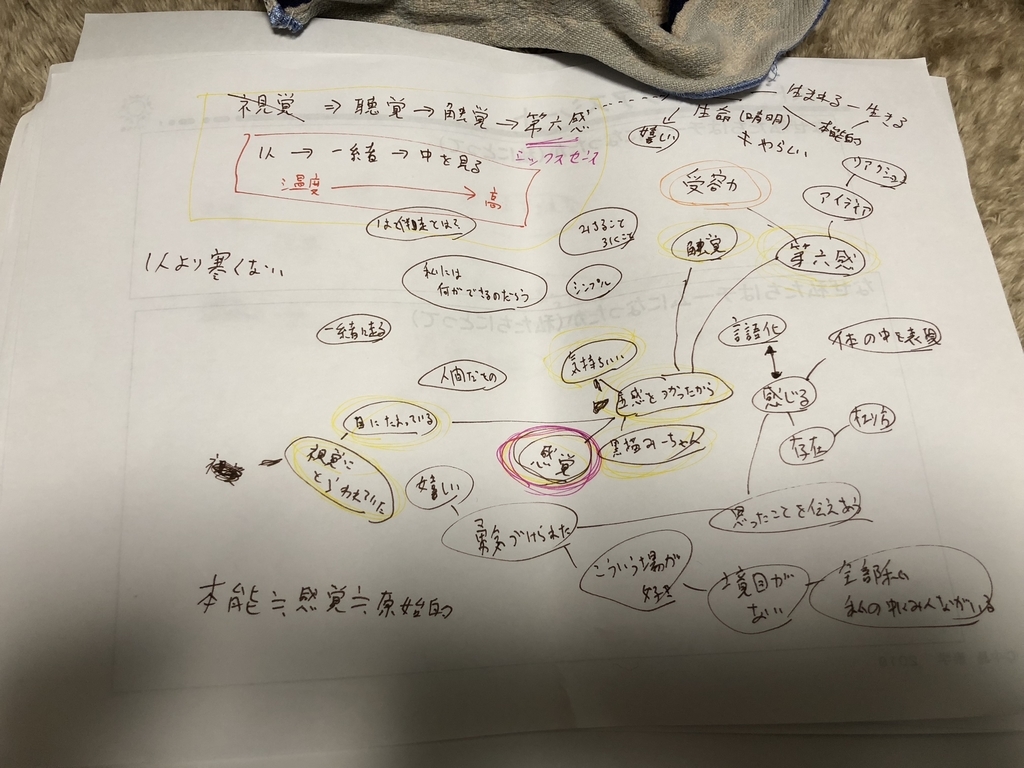 視覚 ⇒ 聴覚 → 触覚 → 第六感
シックスセンス
1人 → 一緒 → 中を見る
温度 → 高
生まれる ー 生きる
生命(晴明)
本能的
やわらかい
嬉しい
受容力
リアクション
アイディア
第六感
触覚
シンプル
私には
何ができるのだろう
1人より寒くない
一緒に走る
人間だもの
気持ちいい
五感をつかったから
言語化
体の中を表現
感じる
存在
在り方
目にたよっている
視覚に
とらわれていた
感覚
嬉しい
勇気づけられた
思ったことを伝えよう
こういう場が
好き
境目が
ない
全部私の
私の中にみんながいる
本能≒感覚≒原始的
なぜ私たちはチームになったか(私たちにとって)